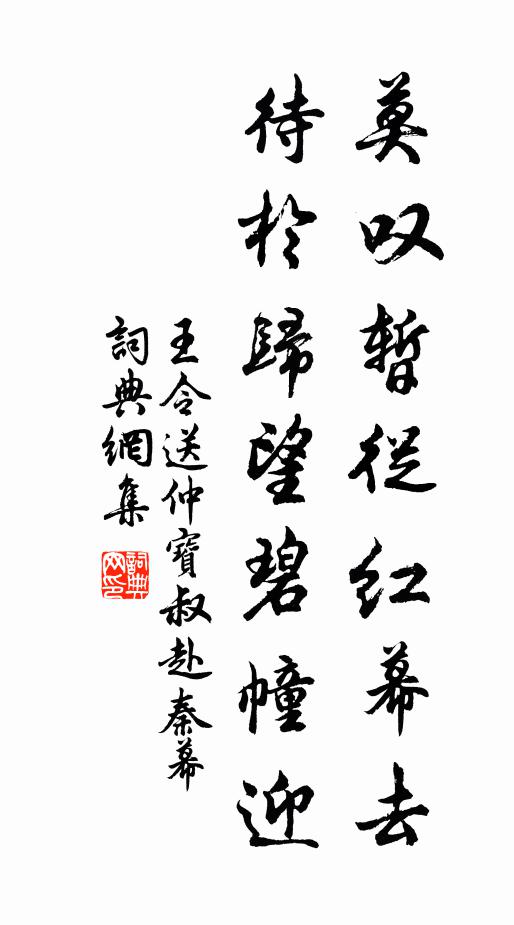 莫叹暫從红幕去
待於歸望碧幢迎
王令送仲寶叔赴秦幕
詞典網集
詞典网印